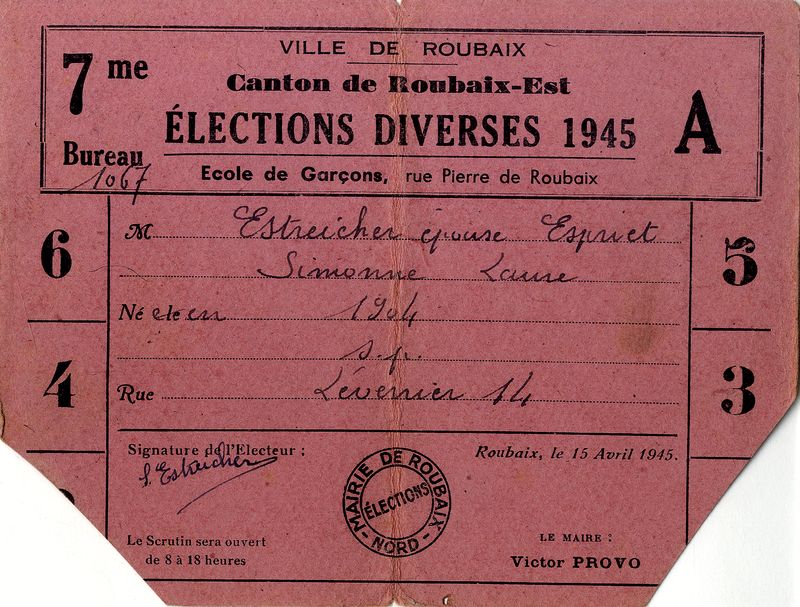 VILLE DE ROUBAIX
Canton de Roubaix-Est
7me
ÉLECTIONS DIVERSES 1945
A
Bureau
Ecole de Garçons, rue Pierre de Roubaix
1067
M Estreicher épouse Espriet
Simonne Laure
6
5
Né ele en 1904
s.p.
4
3
Rue Léverrier 14
Signature de l'Electeur :
S. Estreicher
Roubaix, le 15 Avril 1945.
MAIRIE DE ROUBAIX
ÉLECTIONS
- NORD -
Le Scrutin sera ouvert
de 8 à 18 heures
LE MAIRE :
Victor PROVO